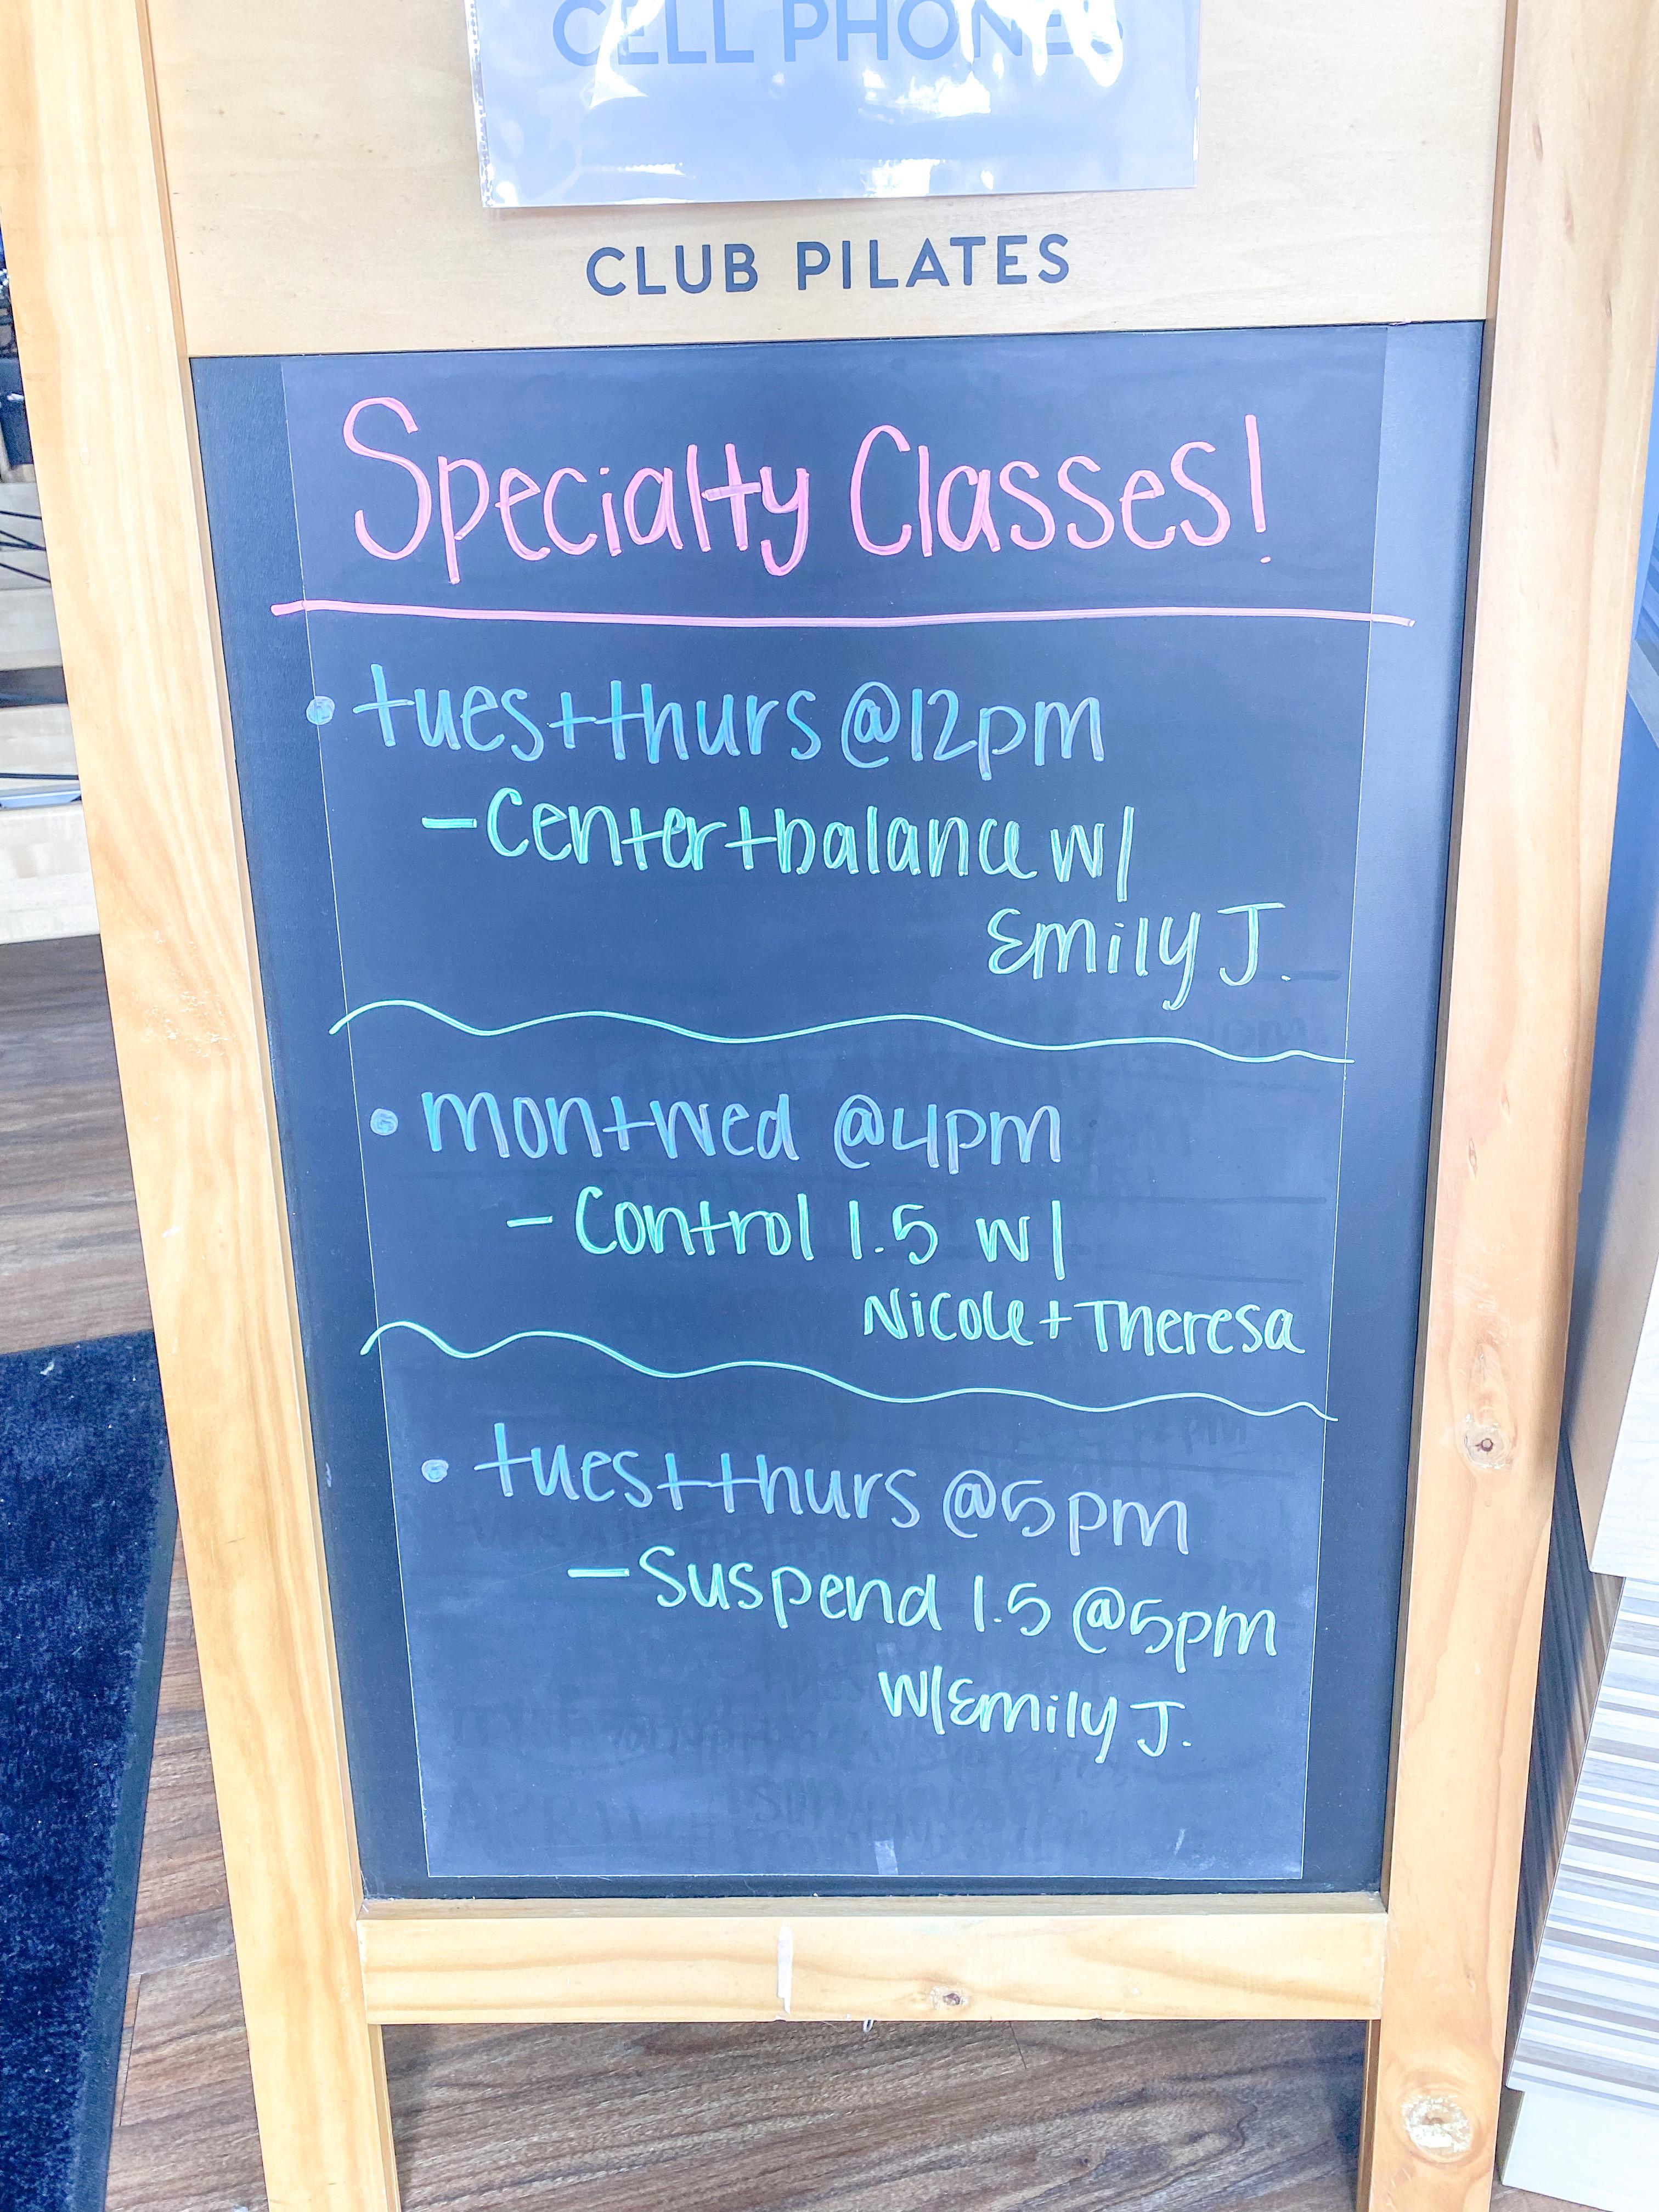 CELL PHONES
CLUB PILATES
Specialty Classes!
• tues + thurs @ 12pm
- Center + balance w/
Emily J.
• mon + wed @ 4pm
- Control 1.5 w/
Nicole + Theresa
• tues + thurs @ 5pm
- Suspend 1.5 @ 5pm
w/ Emily J.